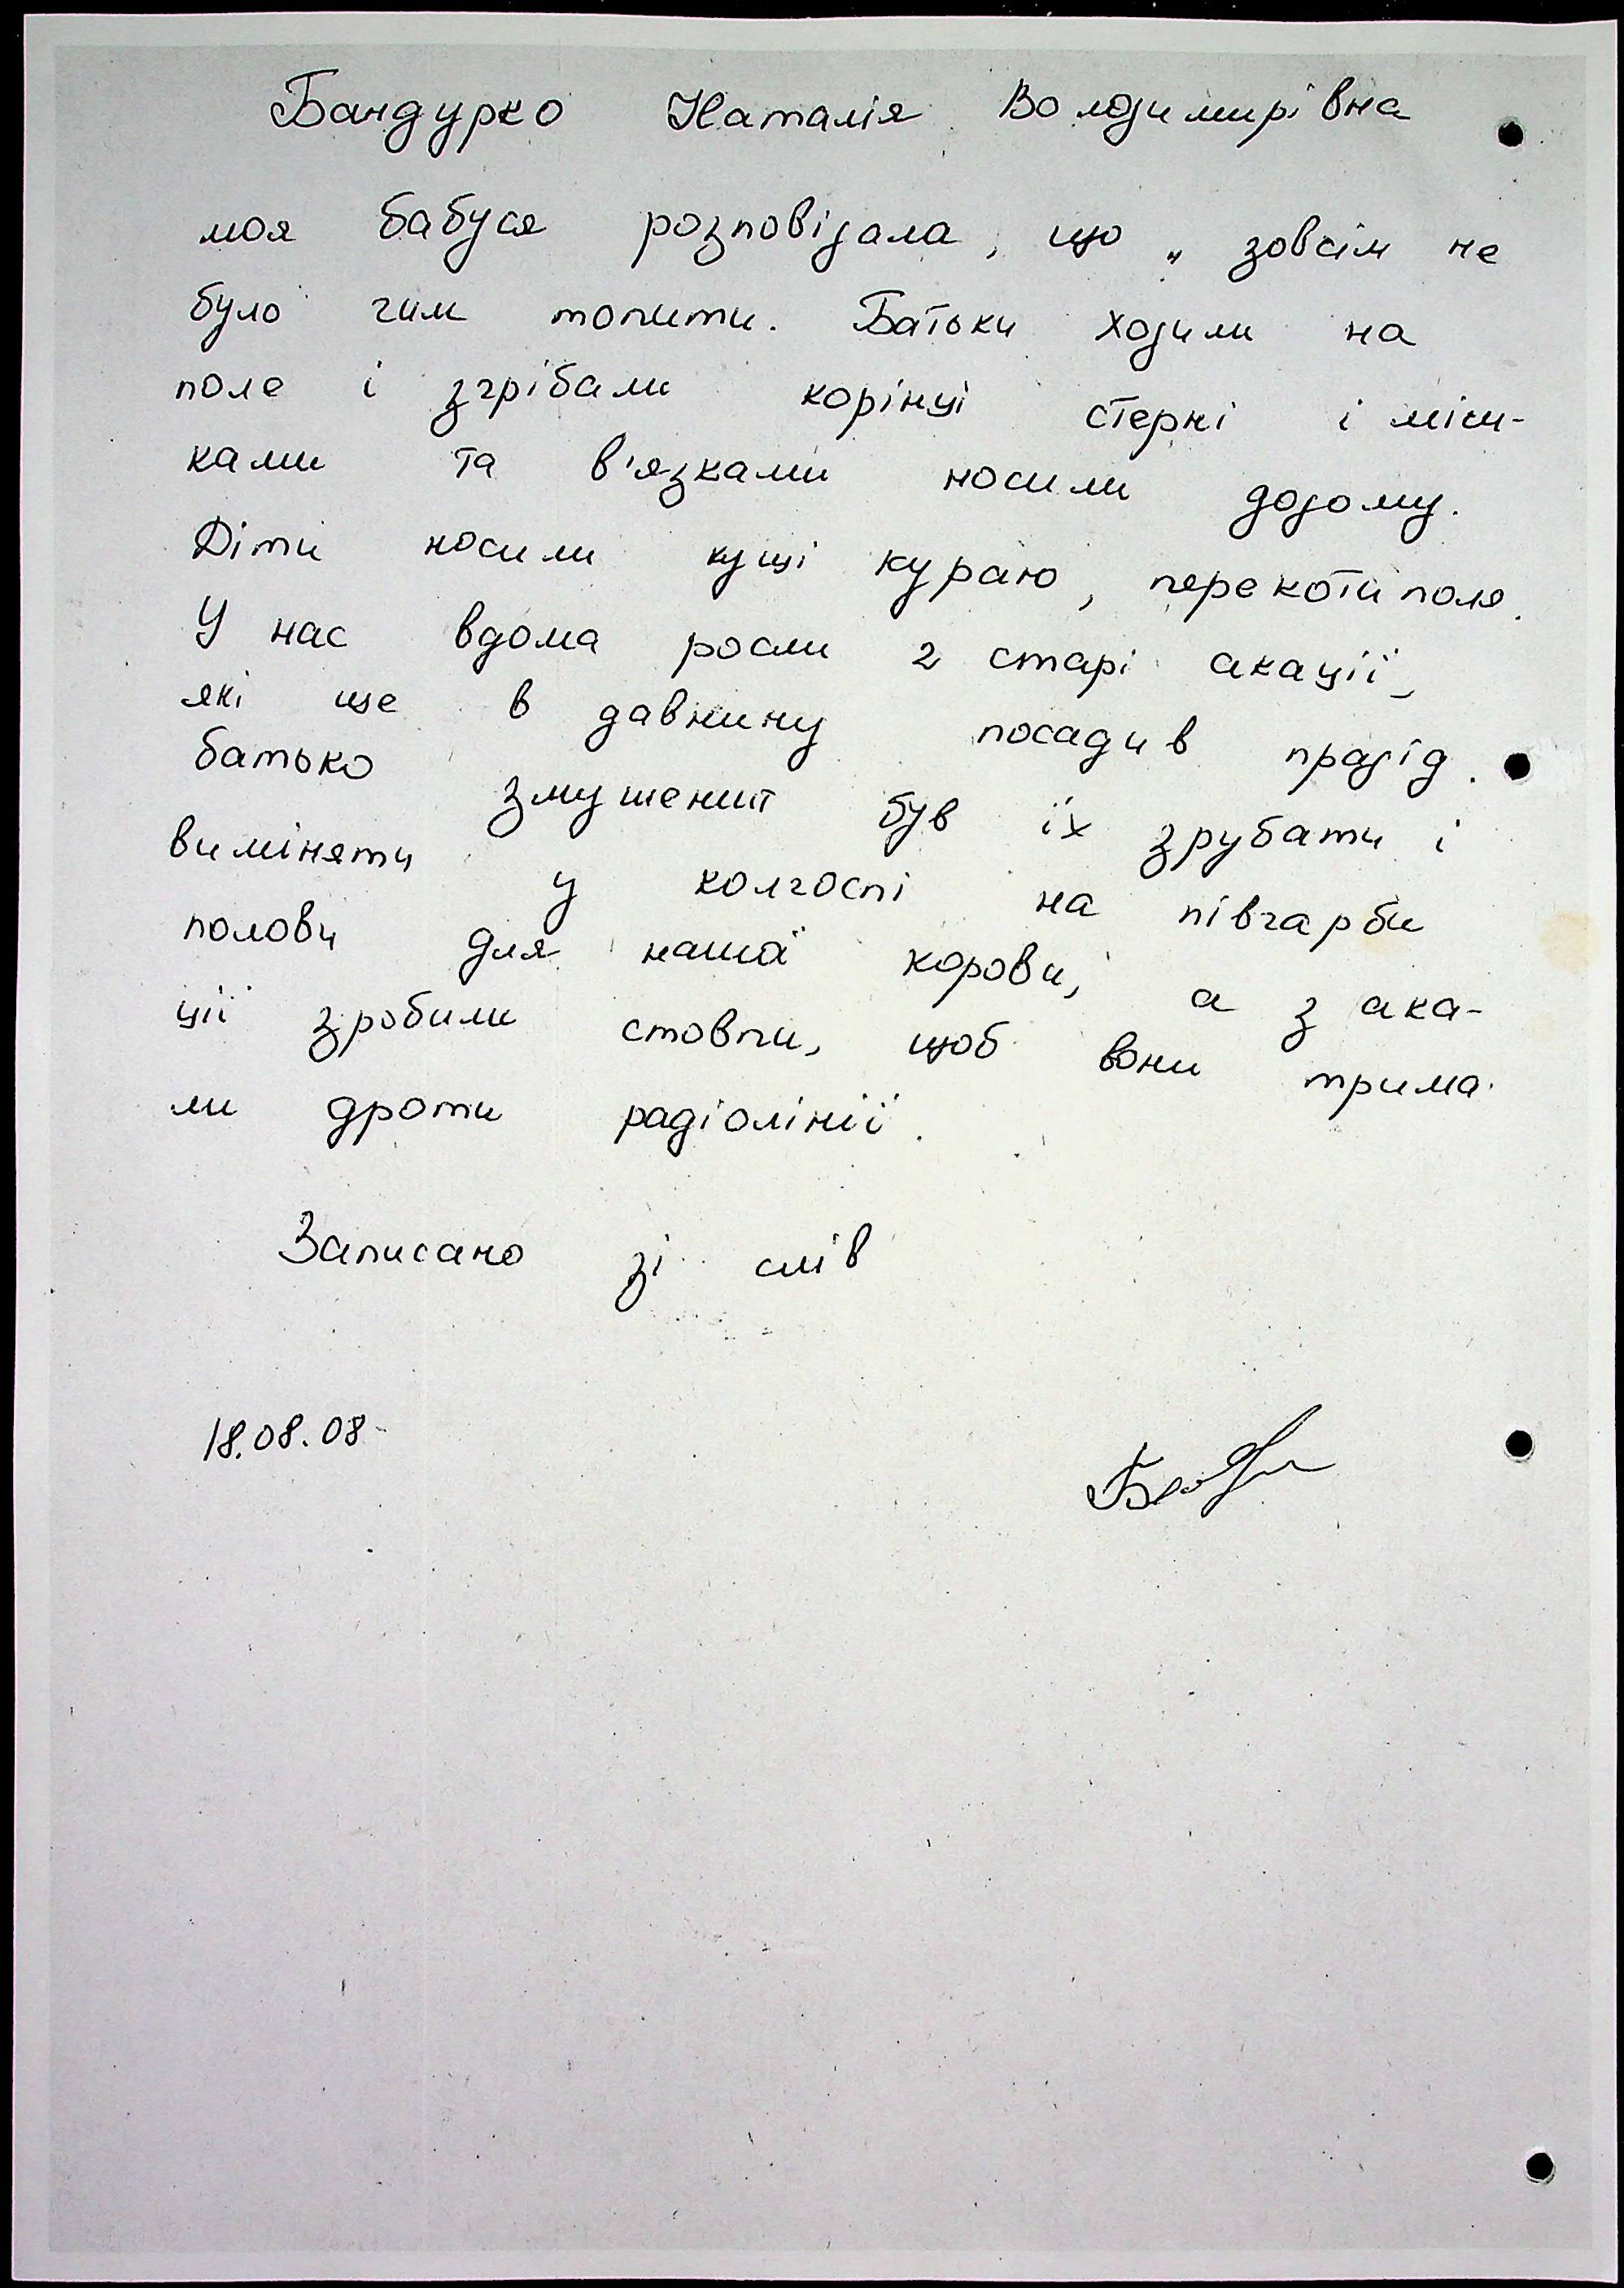 Бандурко Наталія Володимирівна
моя бабуся розповідала, що „ зовсім не
було чим топити. Батьки ходили на
поле і згрібали корінці стерні і міш-
ками та в'язками носили додому.
Діти носили кущі кураю, перекотиполя.
У нас вдома росли 2 старі акації,
які ще в давнину посадив прадід.
батько змушений був їх зрубати і
виміняти у колгоспі на півгарби
полови для нашої корови, а з ака-
ції зробили стовпи, щоб вони трима-
ли дроти радіолінії.
Записано зі слів
18.08.08